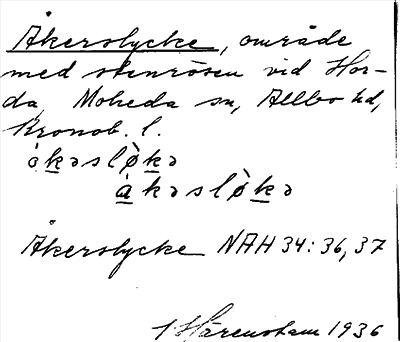 Åkerslycke, område
med stenrösen vid Hor-
da, Moheda sn, Allbo hd,
Kronob. l.
åkəslø̀kə
åkəsløkə
Åkerslycke NAH 34: 36, 37
Härenstam 1936